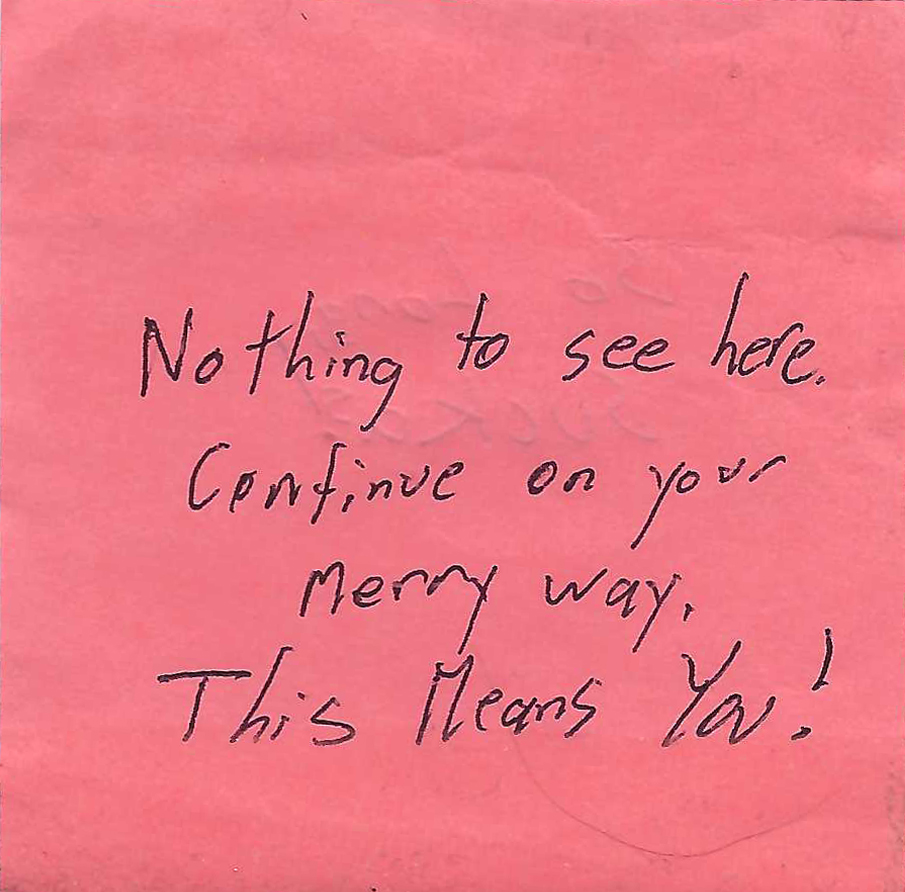 Nothing to see here.
Continue on your
merry way.
This Means You!